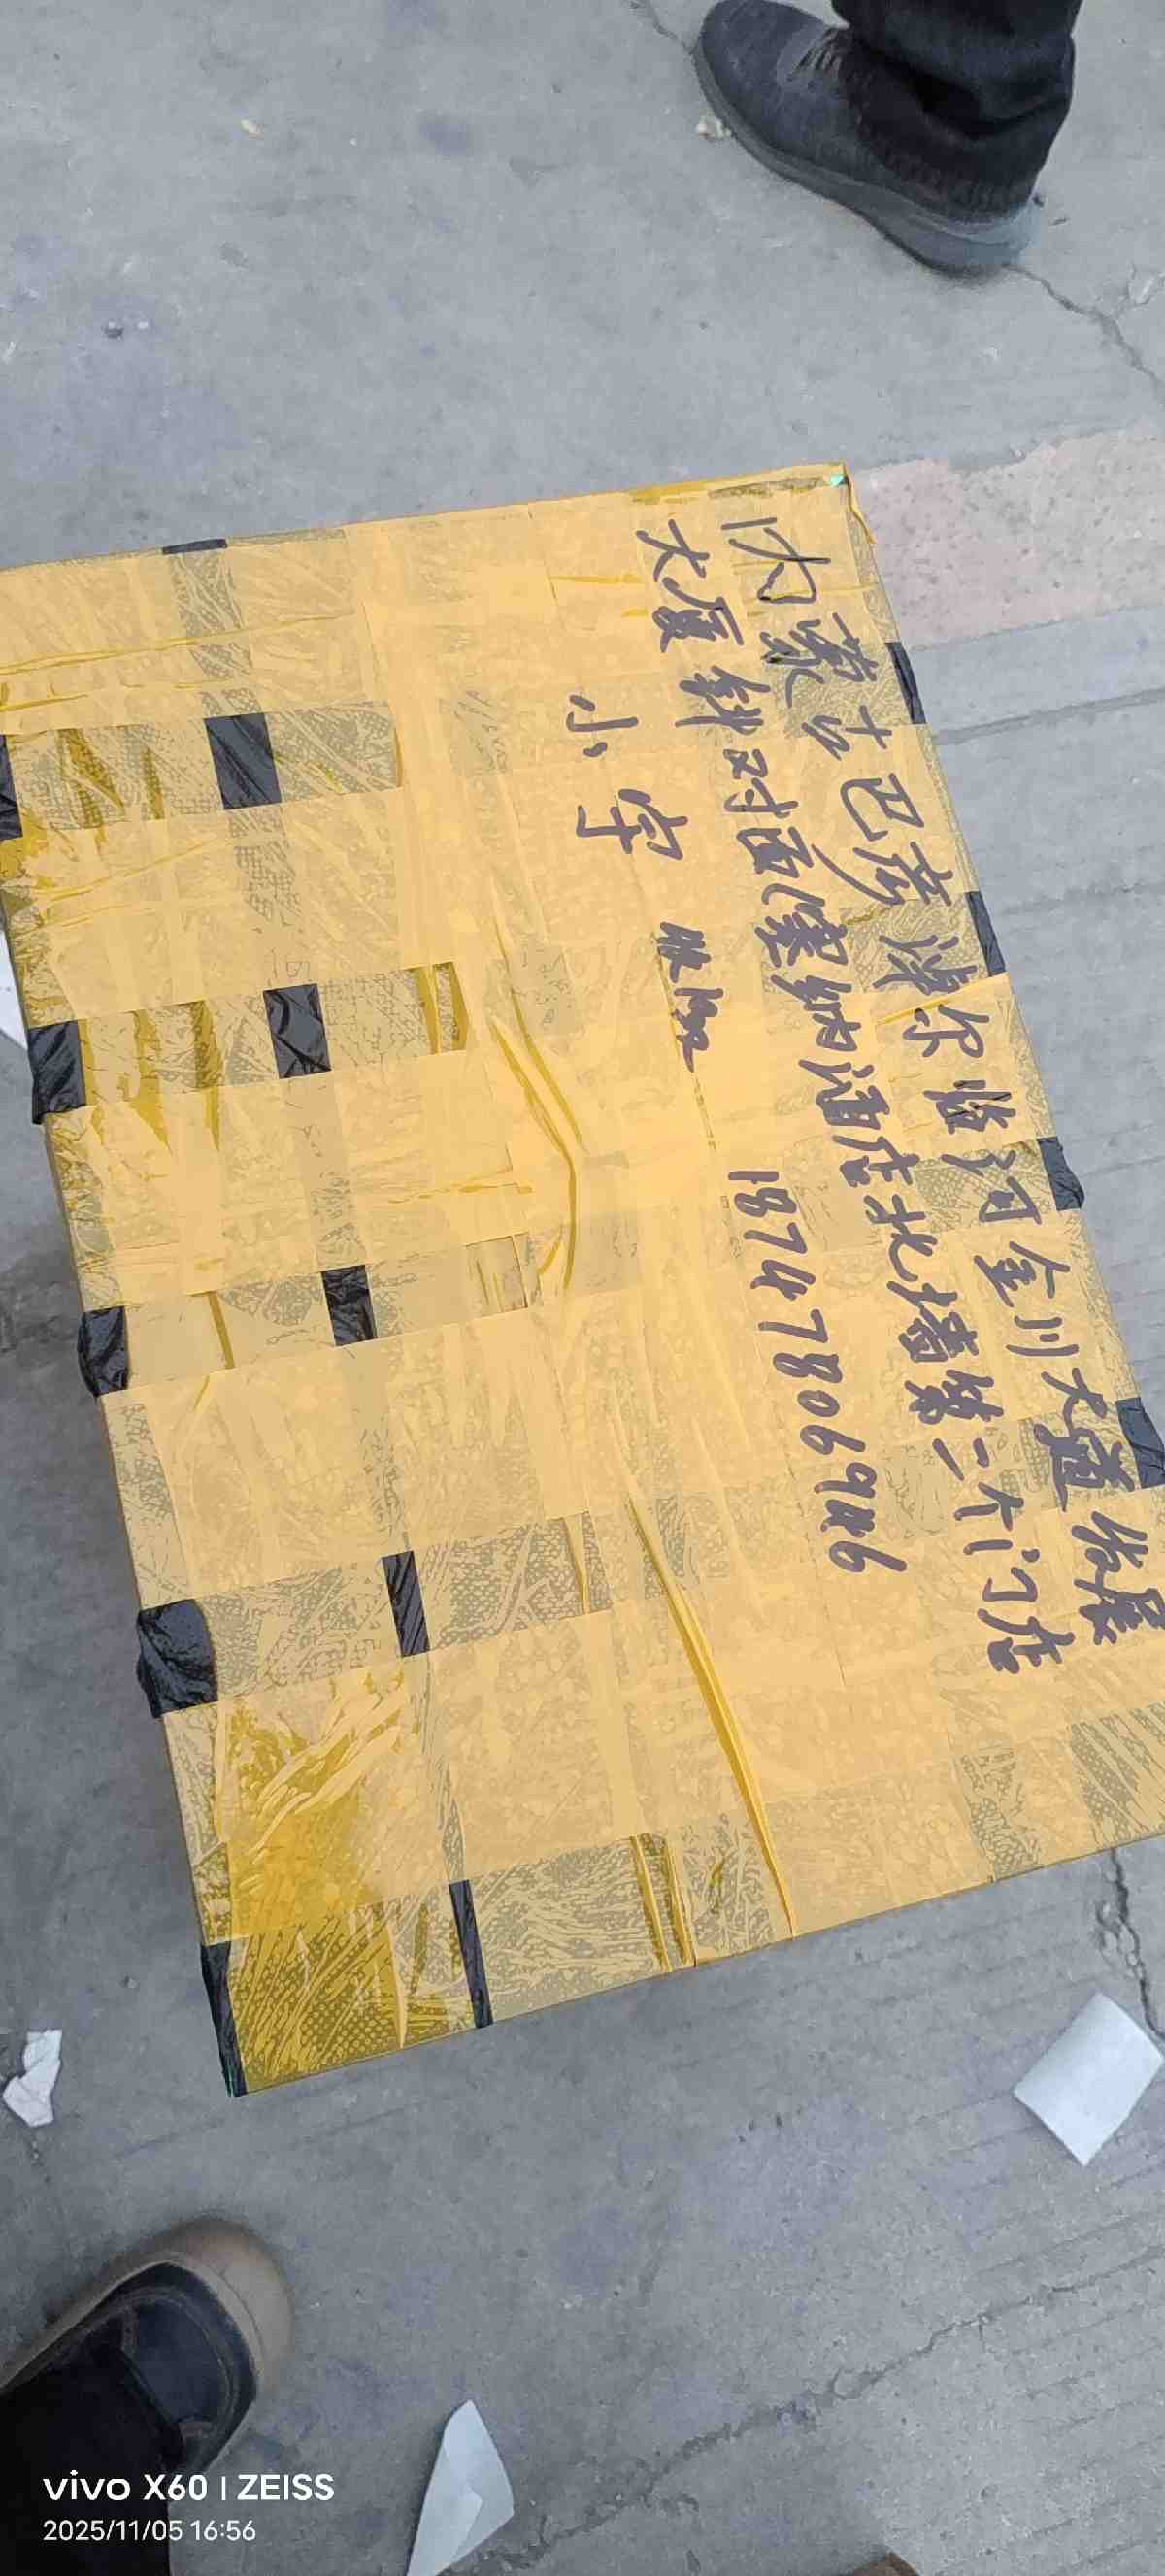 内蒙古巴彦淖尔临河金川大道发展
大厦斜对面塞纳酒店北墙第一个门店
小宇 收
18747806946
vivo X60 | ZEISS
2025/11/05 16:56